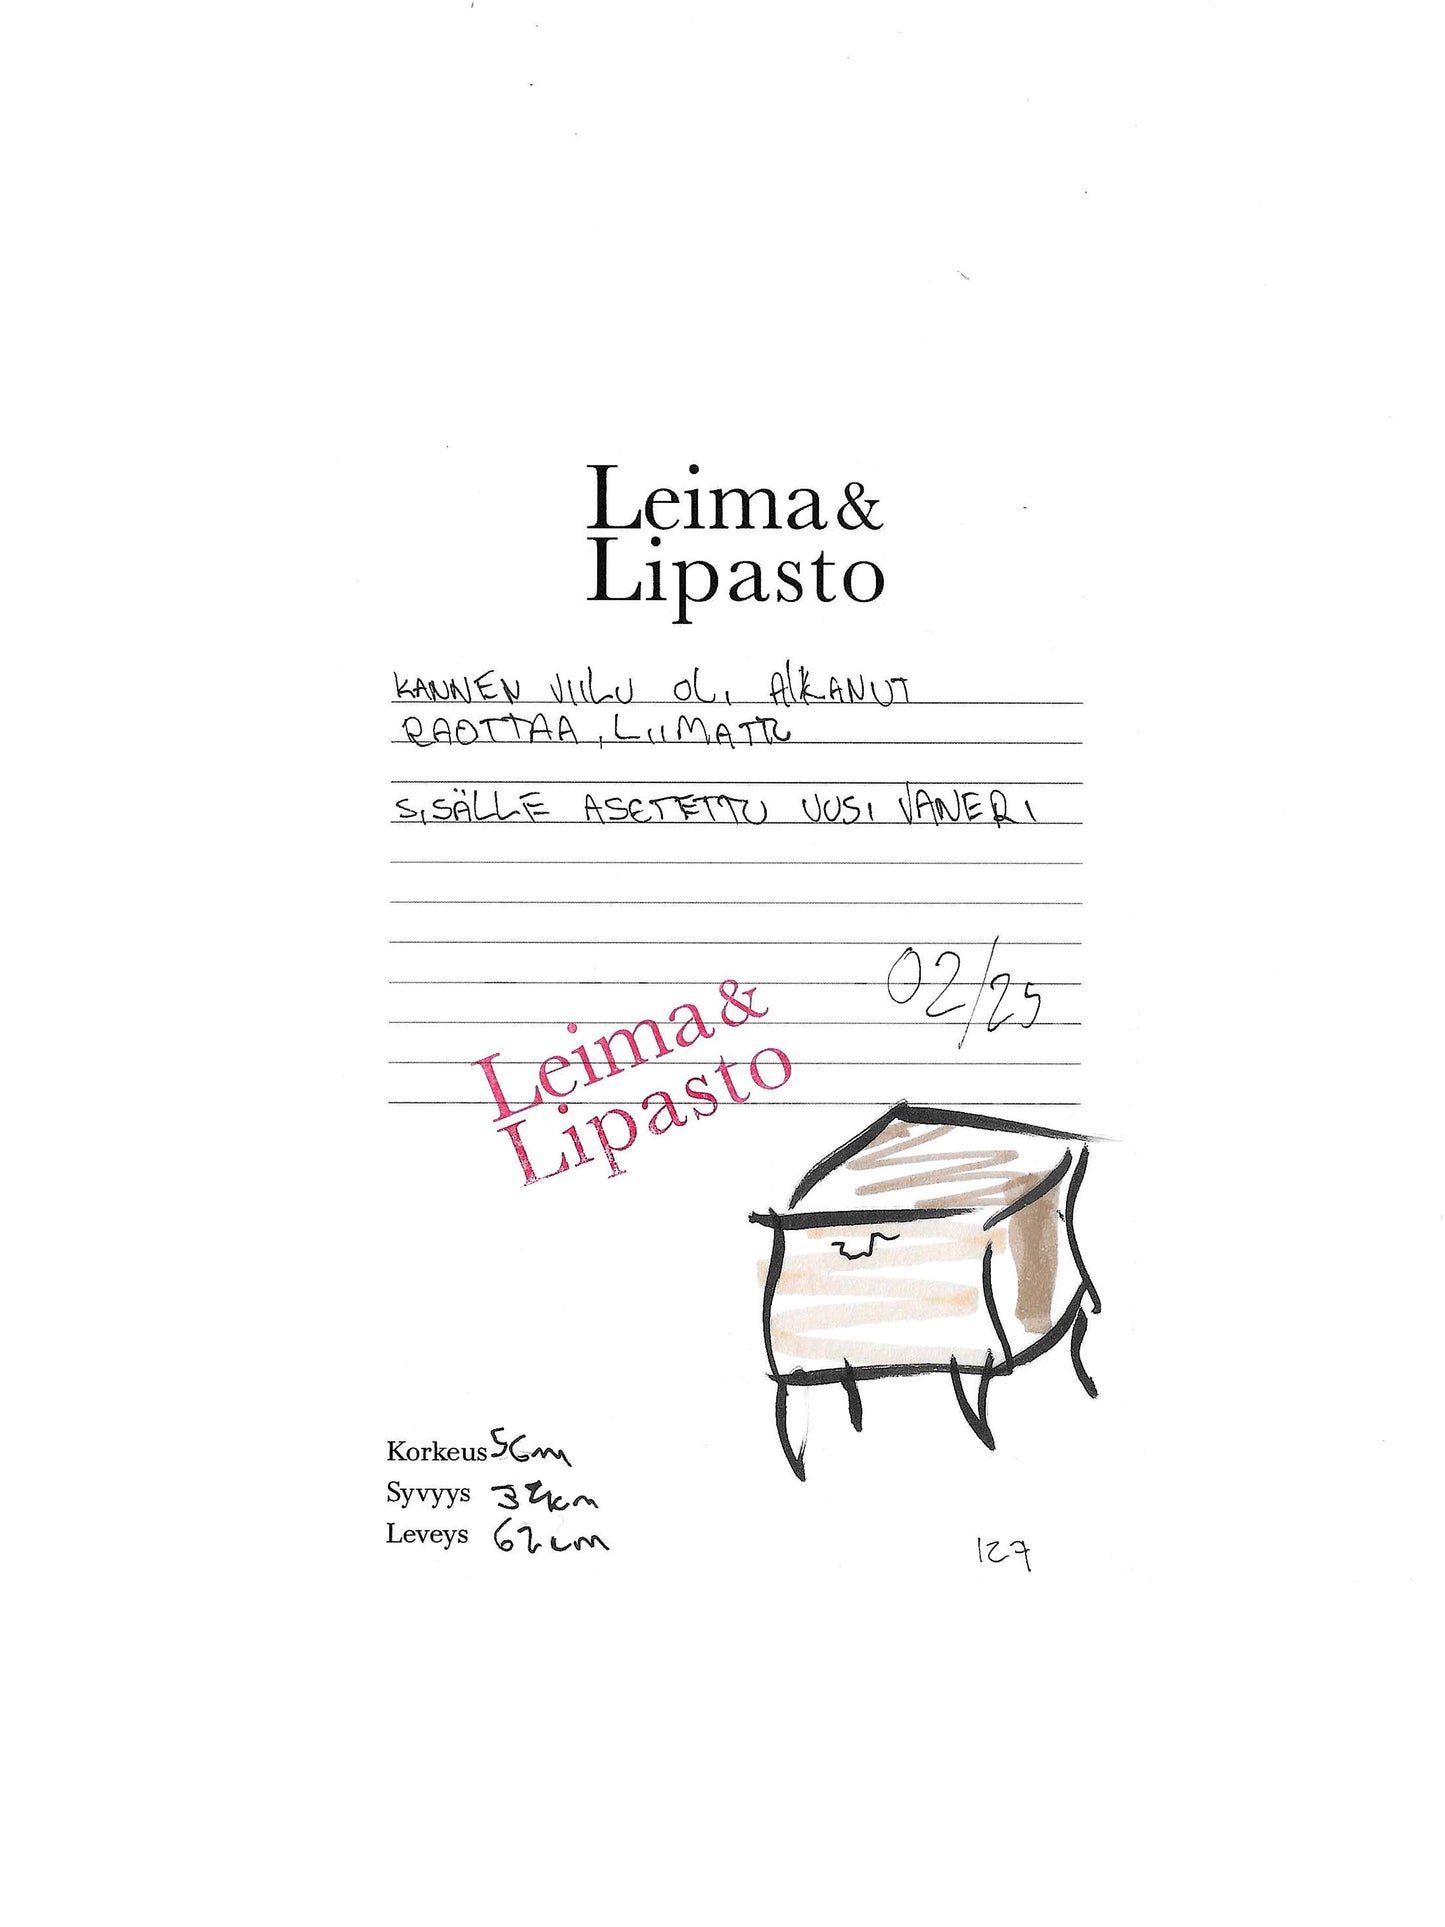 Leima&
Lipasto
KANNEN VIILU OLI ALKANUT
RAOTTAA, LIIMATTU
SISÄLLE ASETETTU UUSI VANERI
02/25
Leima&
Lipasto
Korkeus 56m
Syvyys
Leveys 62cm
127